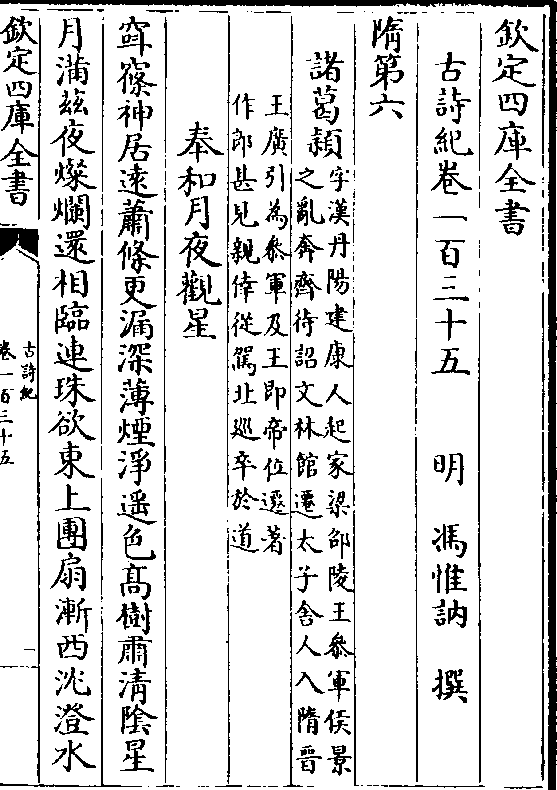 欽定四庫全書
古詩紀卷一百三十五 明 馮惟訥 撰
隋第六
諸葛穎字漢丹陽建康人起家梁邵陵王參軍侯景
之亂奔齊待詔文林館遷太子舍人入隋晉
王廣引為參軍及王即帝位遷著
作郎甚見親倖從駕北巡卒於道
奉和月夜觀星
窅窱神居逺蕭條更漏深薄煙淨遥色髙樹肅清陰星
月滿兹夜燦爛還相臨連珠欲東上團扇漸西沈澄水
欽定四庫全書
古詩紀
卷一百三十五
一